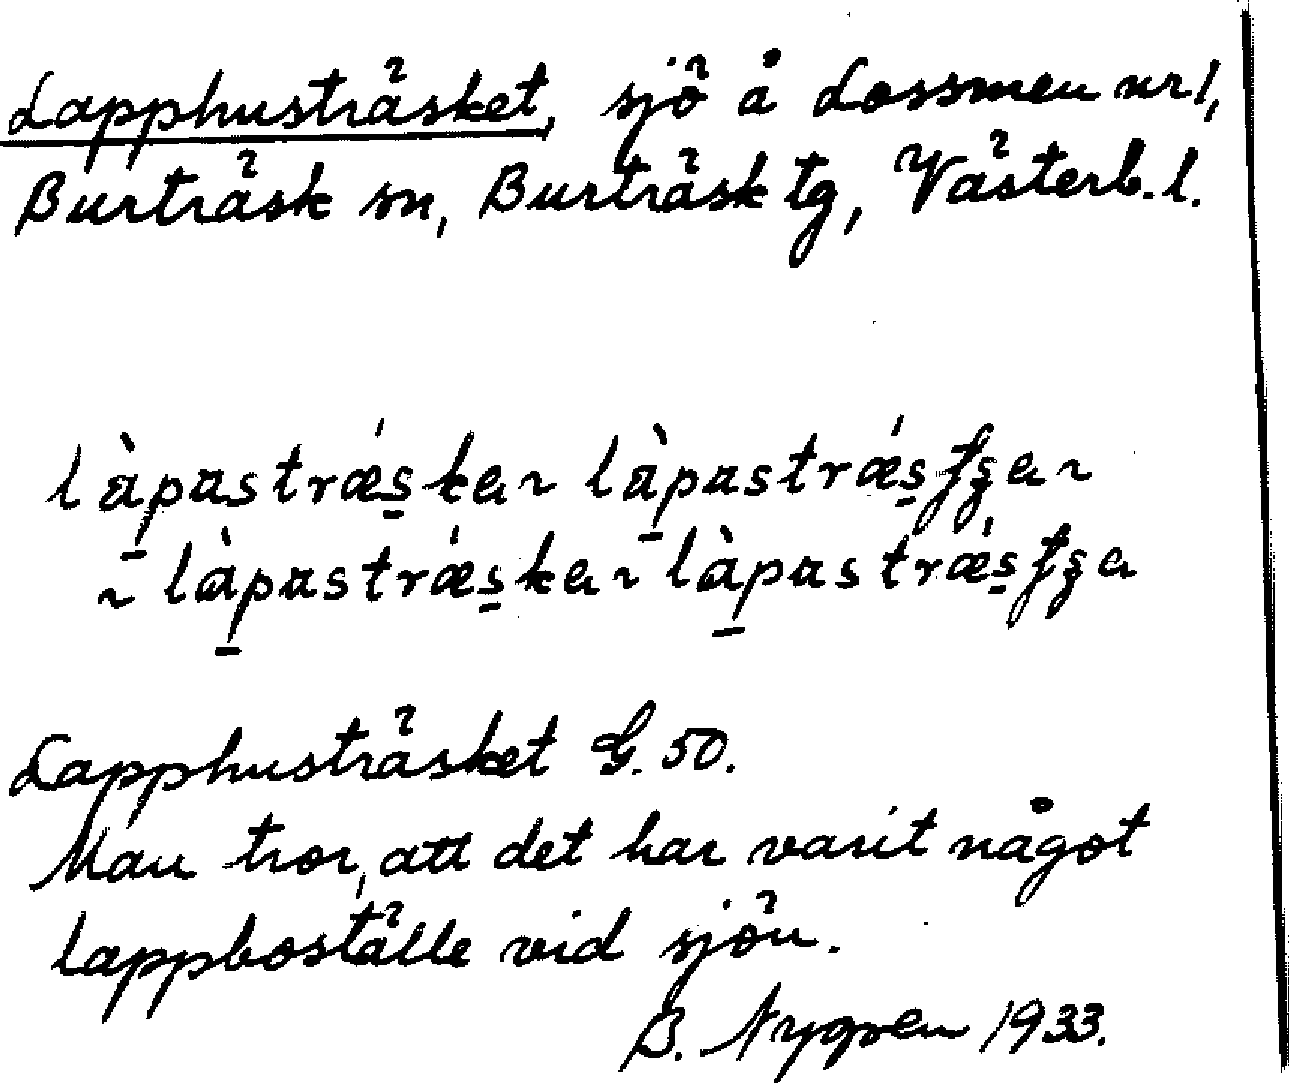 Lapphusträsket, sjö å Lossmen nr 1,
Burträsk sn, Burträsk tg, Västerb. l.
làpastrǽska ~ làpastrǽsʃʂa ~
~ làpastrǽska ~ làpastrǽsʃʂa
Lapphusträsket G. 50.
Man tror, att det har varit något
lappboställe vid sjön.
B. Nygren 1933.